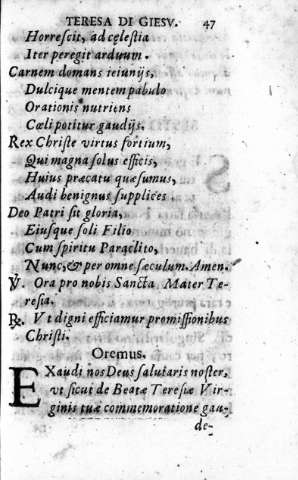 TERESA DI GIESV. 47
Horrescit, ad cęlestia
Iter peregit arduum.
Carnem domans ieiunijs,
Dulcique mentem pabulo
Orationis nutriens
Cœli potitur gaudijs.
Rex Christe virtus fortium,
Qui magna solus efficis,
Huius præcatu quæsumus,
Audi benignus supplices
Deo Patri sit gloria,
Eiusque soli Filio
Cum spiritu Paraclito,
Nunc, & per omne sæculum. Amen.
℣. Ora pro nobis Sancta Mater Te-
resia.
℞. Vt digni efficiamur promissionibus
Christi.
Oremus.
EXaudi nos Deus salutaris noster,
vt sicut de Beatæ Teresiæ Vir-
ginis tuæ commemoratione gau-
de-